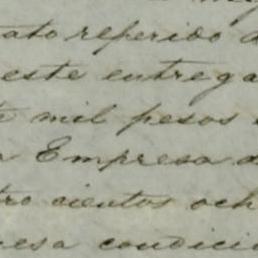 ato referido
este entrega
mil pesos
Empresa d
tro cientos och
esa condici